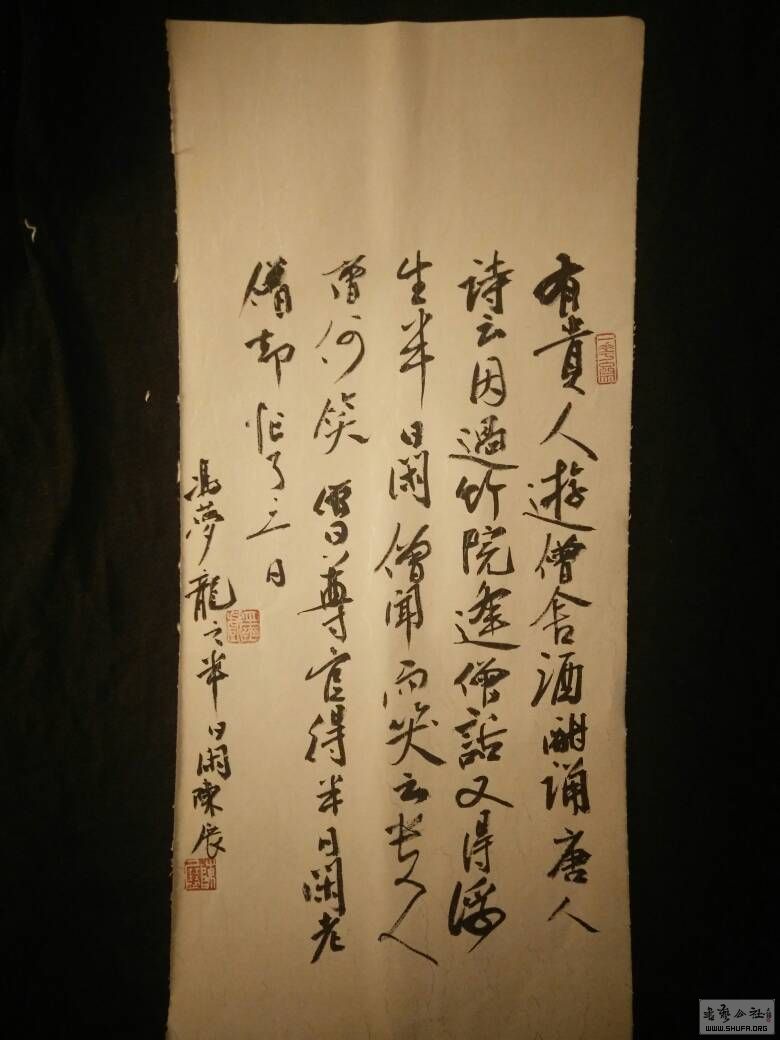 有貴人遊僧舍酒酣誦唐人
詩云因過竹院逢僧話又得浮
生半日閑僧聞而笑云貴人
僧何笑僧曰尊官得半日閑老
僧却忙了三日
馮夢龍之半日閑陳展
書藝公社
WWW.SHUFA.ORG